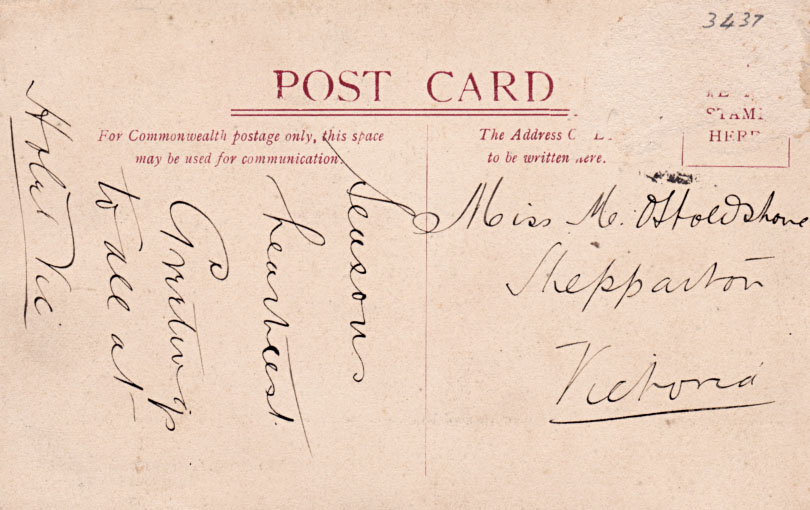 3437
POST CARD
For Commonwealth postage only, this space
may be used for communication.
The Address
to be written here.
STAM
HERE
Seasons
heartiest
Greetings
to all at
Vic
Miss M.
Shepparton
Victoria